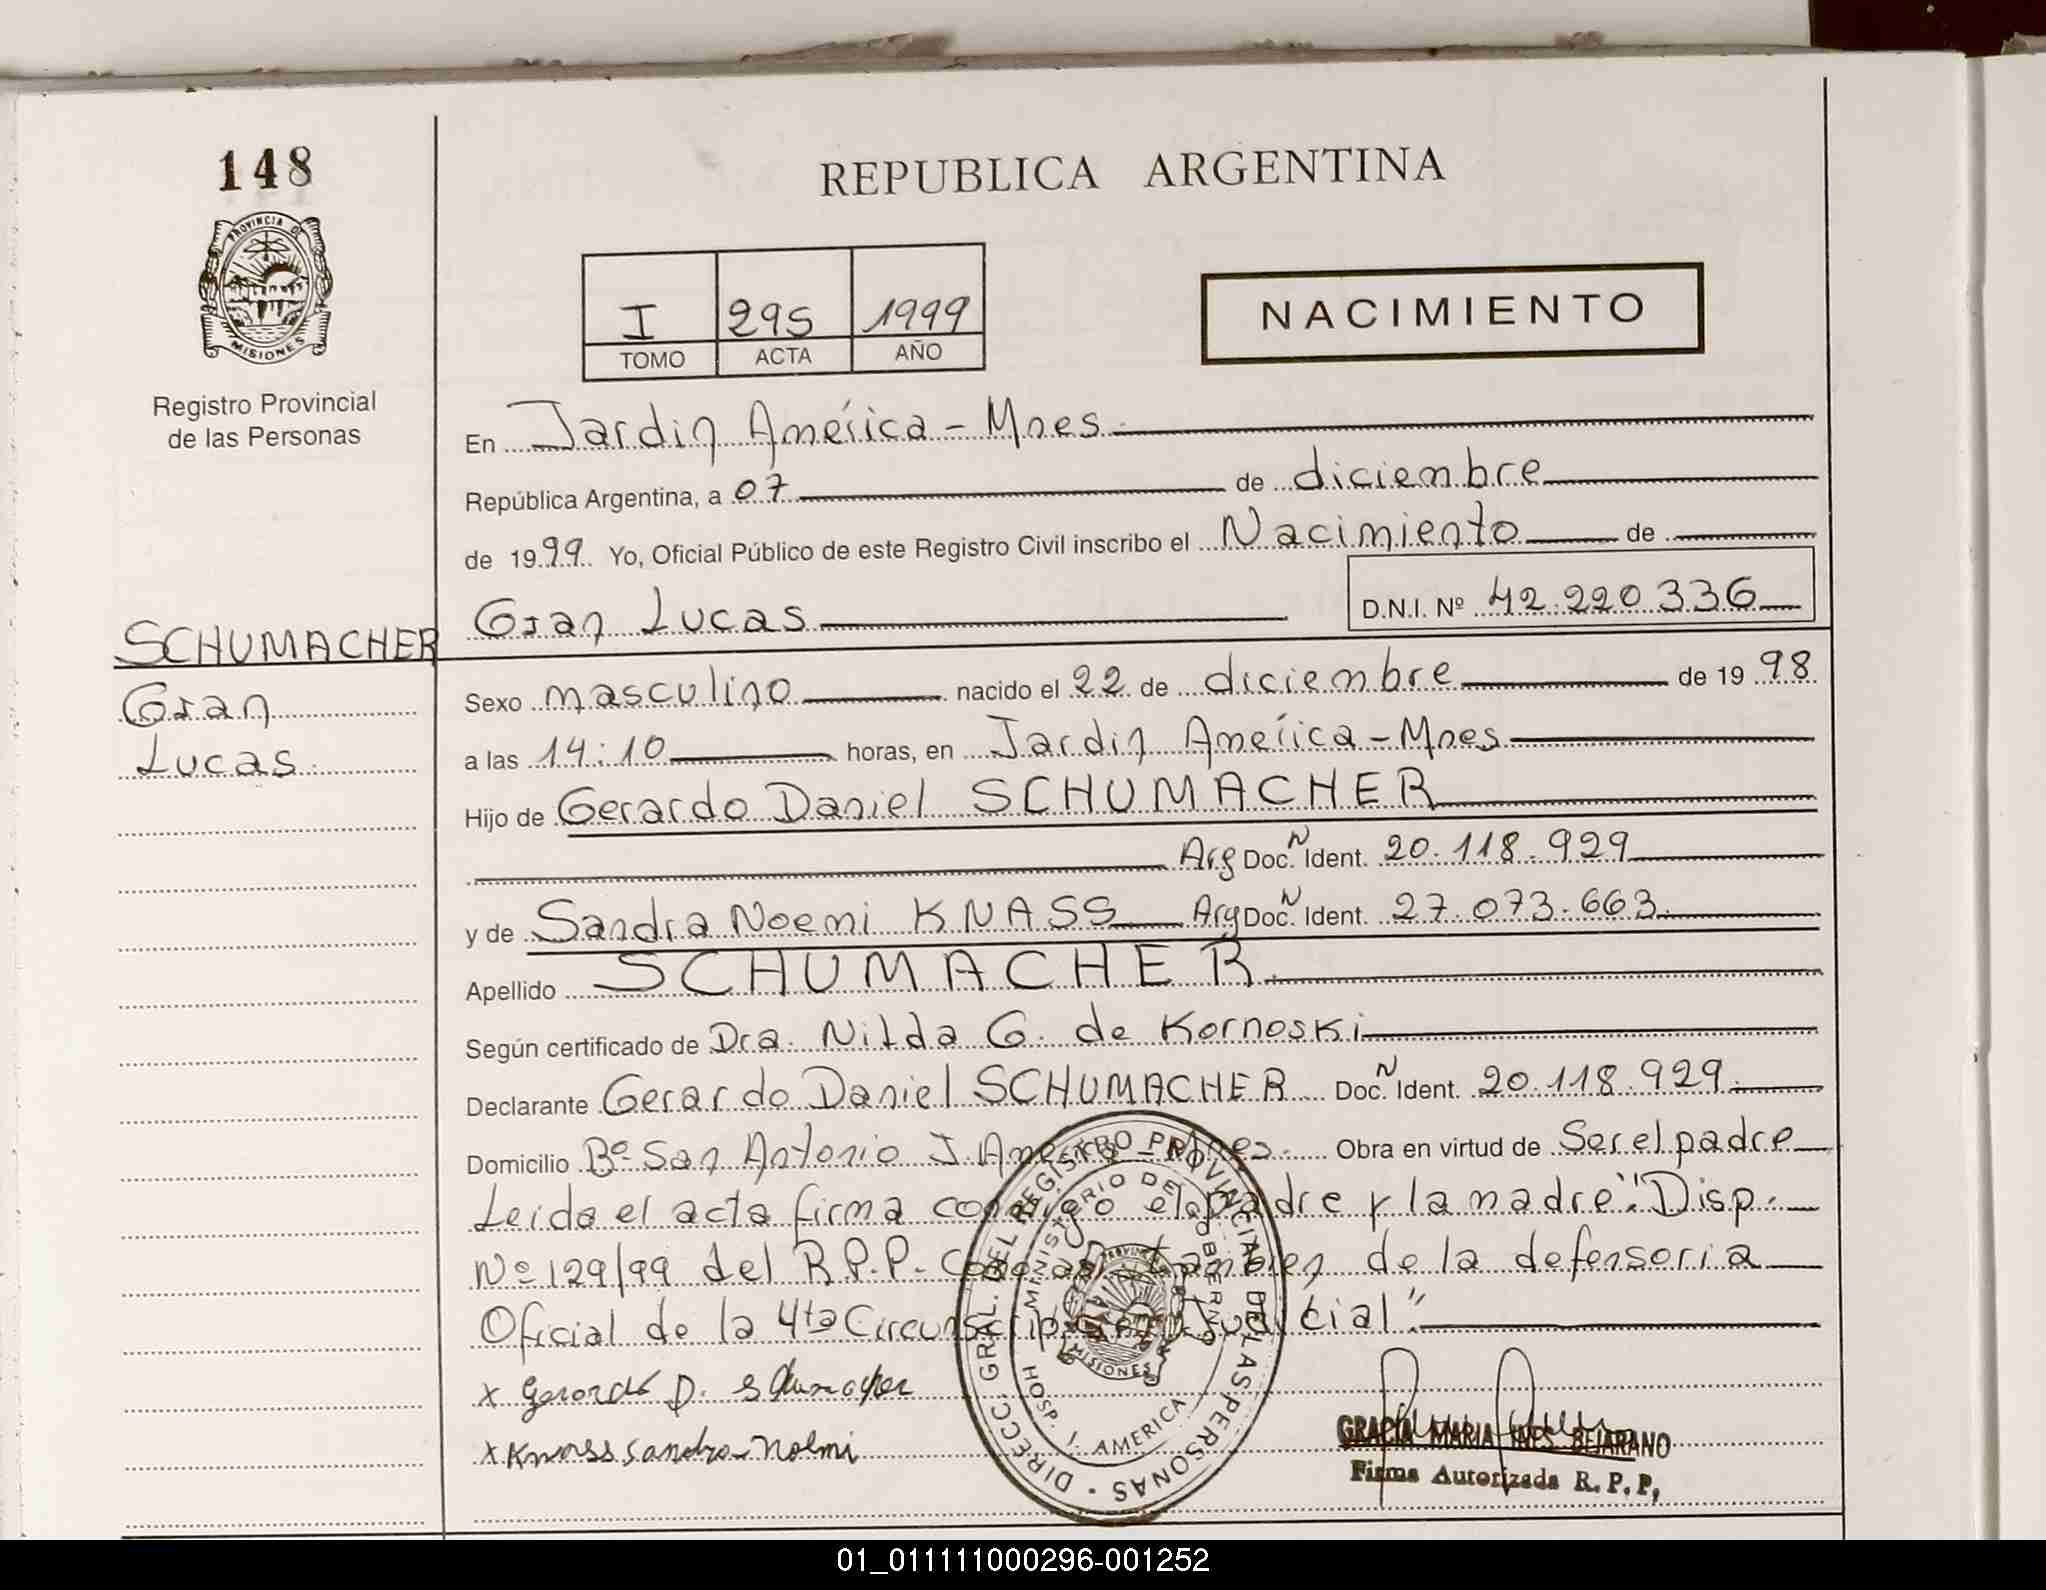 148
REPUBLICA ARGENTINA
PROVINCIA DE
MISIONES
Registro Provincial
de las Personas
I 295 1999
TOMO ACTA AÑO
NACIMIENTO
En Jardin América - Mnes.
República Argentina, a 07 de diciembre
de 1999. Yo, Oficial Público de este Registro Civil inscribo el Nacimiento de
Gian Lucas
D.N.I. Nº 42.220.336
SCHUMACHER
Gian
Lucas
Sexo masculino nacido el 22 de diciembre de 19 98
a las 14:10 horas, en Jardin América - Mnes
Hijo de Gerardo Daniel SCHUMACHER
Arg Doc. N Ident. 20.118.929
y de Sandra Noemi KNASS Arg Doc. N Ident. 27.073.663.
Apellido SCHUMACHER.
Según certificado de Dra. Nilda G. de Kornoski
Declarante Gerardo Daniel SCHUMACHER Doc. N Ident. 20.118.929.
Domicilio Bº San Antonio J. América - Mnes. Obra en virtud de Ser el padre
Leida el acta firma conmigo el padre y la madre". "Disp.
Nº 129/99 del R.P.P. como así tambien de la defensoria
Oficial de la 4ta Circunscripción Judicial".
x Gerardo D. Schumacher
x Knass Sandra Noemi
DIRECC. GRAL. DEL REGISTRO PROVINCIAL DE LAS PERSONAS
MINISTERIO DE GOBIERNO
HOSP. J. AMERICA
PROVINCIA DE
MISIONES
GRACIA MARIA INES BEJARANO
Firma Autorizada R.P.P.
01_011111000296-001252